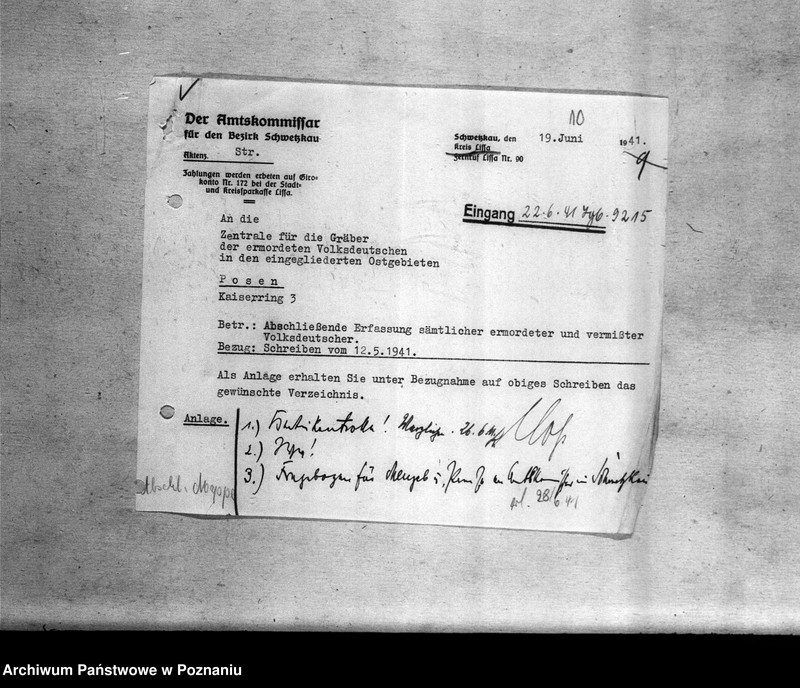 10
Der Amtskommissar
für den Bezirk Schwetzkau
Schwetzkau, den 19.Juni 1941.
Kreis Lissa
Fernruf Lissa Nr. 90
9
Aktenz. Str.
Zahlungen werden erbeten auf Giro-
konto Nr. 172 bei der Stadt-
und Kreissparkasse Lissa.
Eingang 22.6.41 9215
An die
Zentrale für die Gräber
der ermordeten Volksdeutschen
in den eingegliederten Ostgebieten
Posen
Kaiserring 3
Betr.: Abschließende Erfassung sämtlicher ermordeter und vermißter
Volksdeutscher.
Bezug: Schreiben vom 12.5.1941.
Als Anlage erhalten Sie unter Bezugnahme auf obiges Schreiben das
gewünschte Verzeichnis.
Anlage.
1.) 26.6.
2.)
3.) Fragebogen für in Schwetzkau
28/6 41
Abschl. Mappe
Archiwum Państwowe w Poznaniu